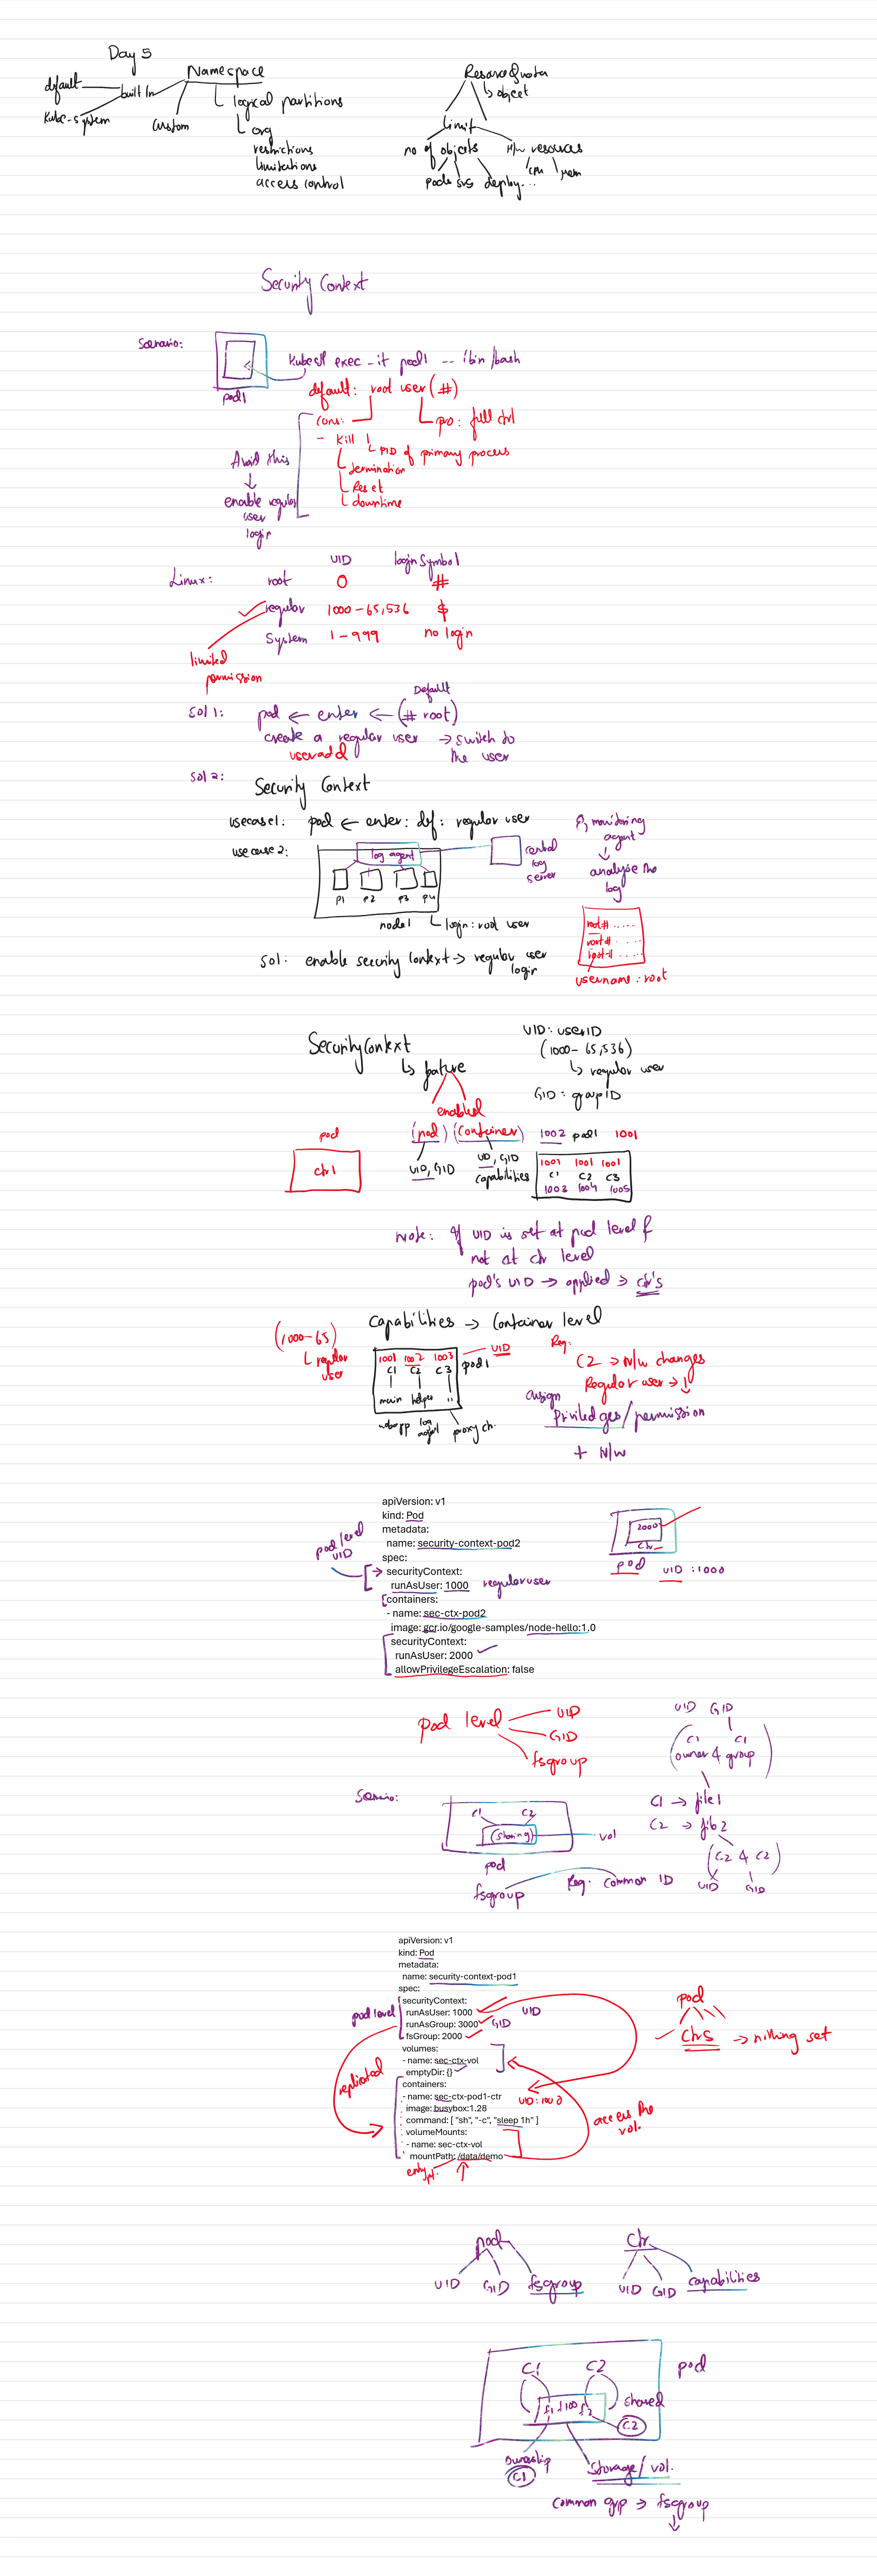 Day 5
Namespace
default
built In
Kube-system
Custom
logical partitions
org
restrictions
limitations
access control
ResourceQuota
object
limit
no of objects
H/w resources
pods svs deploy...
cpu mem
Security Context
Scenario:
pod1
Kubectl exec -it pod1 -- /bin/bash
default: root user (#)
cons:
pro: full ctrl
- Kill
PID of primary process
termination
Reset
downtime
Avoid this
enable regular
user
login
UID login Symbol
Linux: root 0 #
regular 1000-65,536 $
System 1-999 no login
limited
permission
Default
Sol 1: pod ← enter ← (# root)
create a regular user → switch to
the user
useradd
Sol 2: Security Context
usecase1: pod ← enter: def: regular user
use case 2:
log agent
P1 P2 P3 P4
node1
login: root user
central
log
server
monitoring
agent
analyse the
log
root# .....
root# .....
root# .....
username: root
Sol: enable security Context → regular user
login
SecurityContext
feature
enabled
(pod) (Container)
UID, GID
UID, GID
capabilities
UID: userID
(1000-65,536)
regular user
GID: groupID
pod
ctr1
1002 pod1 1001
1001 1001 1001
C1 C2 C3
1003 1004 1005
Note: If UID is set at pod level &
not at ctr level
pod's UID → applied → ctr's
Capabilities → Container level
(1000-65)
regular
user
1001 1002 1003
C1 C2 C3
UID
pod1
main helper "
webapp log
agent
proxy ch.
Req:
C2 → N/w changes
Regular user → ↓
assign
Priviledges/permission
+ N/w
apiVersion: v1
kind: Pod
metadata:
name: security-context-pod2
spec:
securityContext:
runAsUser: 1000
containers:
- name: sec-ctx-pod2
image: gcr.io/google-samples/node-hello:1.0
securityContext:
runAsUser: 2000
allowPrivilegeEscalation: false
pod level
UID
regular user
2000
ctr
pod
UID: 1000
pod level
UID
GID
fsgroup
UID GID
C1 C1
(owner & group)
C1 → file1
C2 → file2
(C2 & C2)
UID GID
Scenario:
C1 C2
(sharing)
vol
pod
fsgroup
Req. Common ID
apiVersion: v1
kind: Pod
metadata:
name: security-context-pod1
spec:
securityContext:
runAsUser: 1000
runAsGroup: 3000
fsGroup: 2000
volumes:
- name: sec-ctx-vol
emptyDir: {}
containers:
- name: sec-ctx-pod1-ctr
image: busybox:1.28
command: [ "sh", "-c", "sleep 1h" ]
volumeMounts:
- name: sec-ctx-vol
mountPath: /data/demo
pod level
UID
GID
replicated
UID: 1000
access the
vol.
entry pt.
pod
Ctrs → nothing set
pod
UID GID fsgroup
Ctr
UID GID capabilities
C1 C2
pod
shared
C2
ownership
C1
Storage/vol.
Common grp → fsgroup